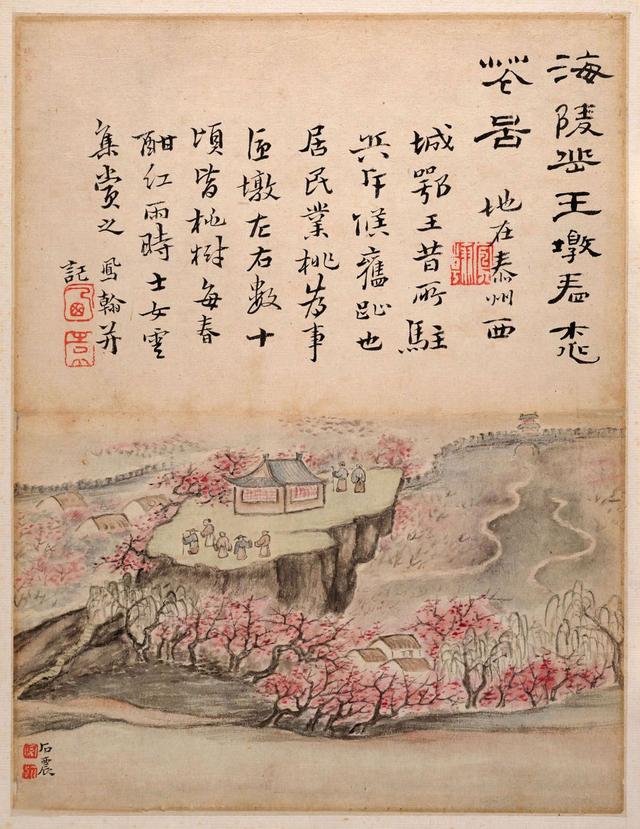 海陵岳王墩
地在泰州西
城鄂王昔所駐
兵斥候舊趾也
居民業桃為事
匝墩左右數十
頃皆桃樹每春
酣紅雨時士女雲
集賞之 鳳翰并
記
石震